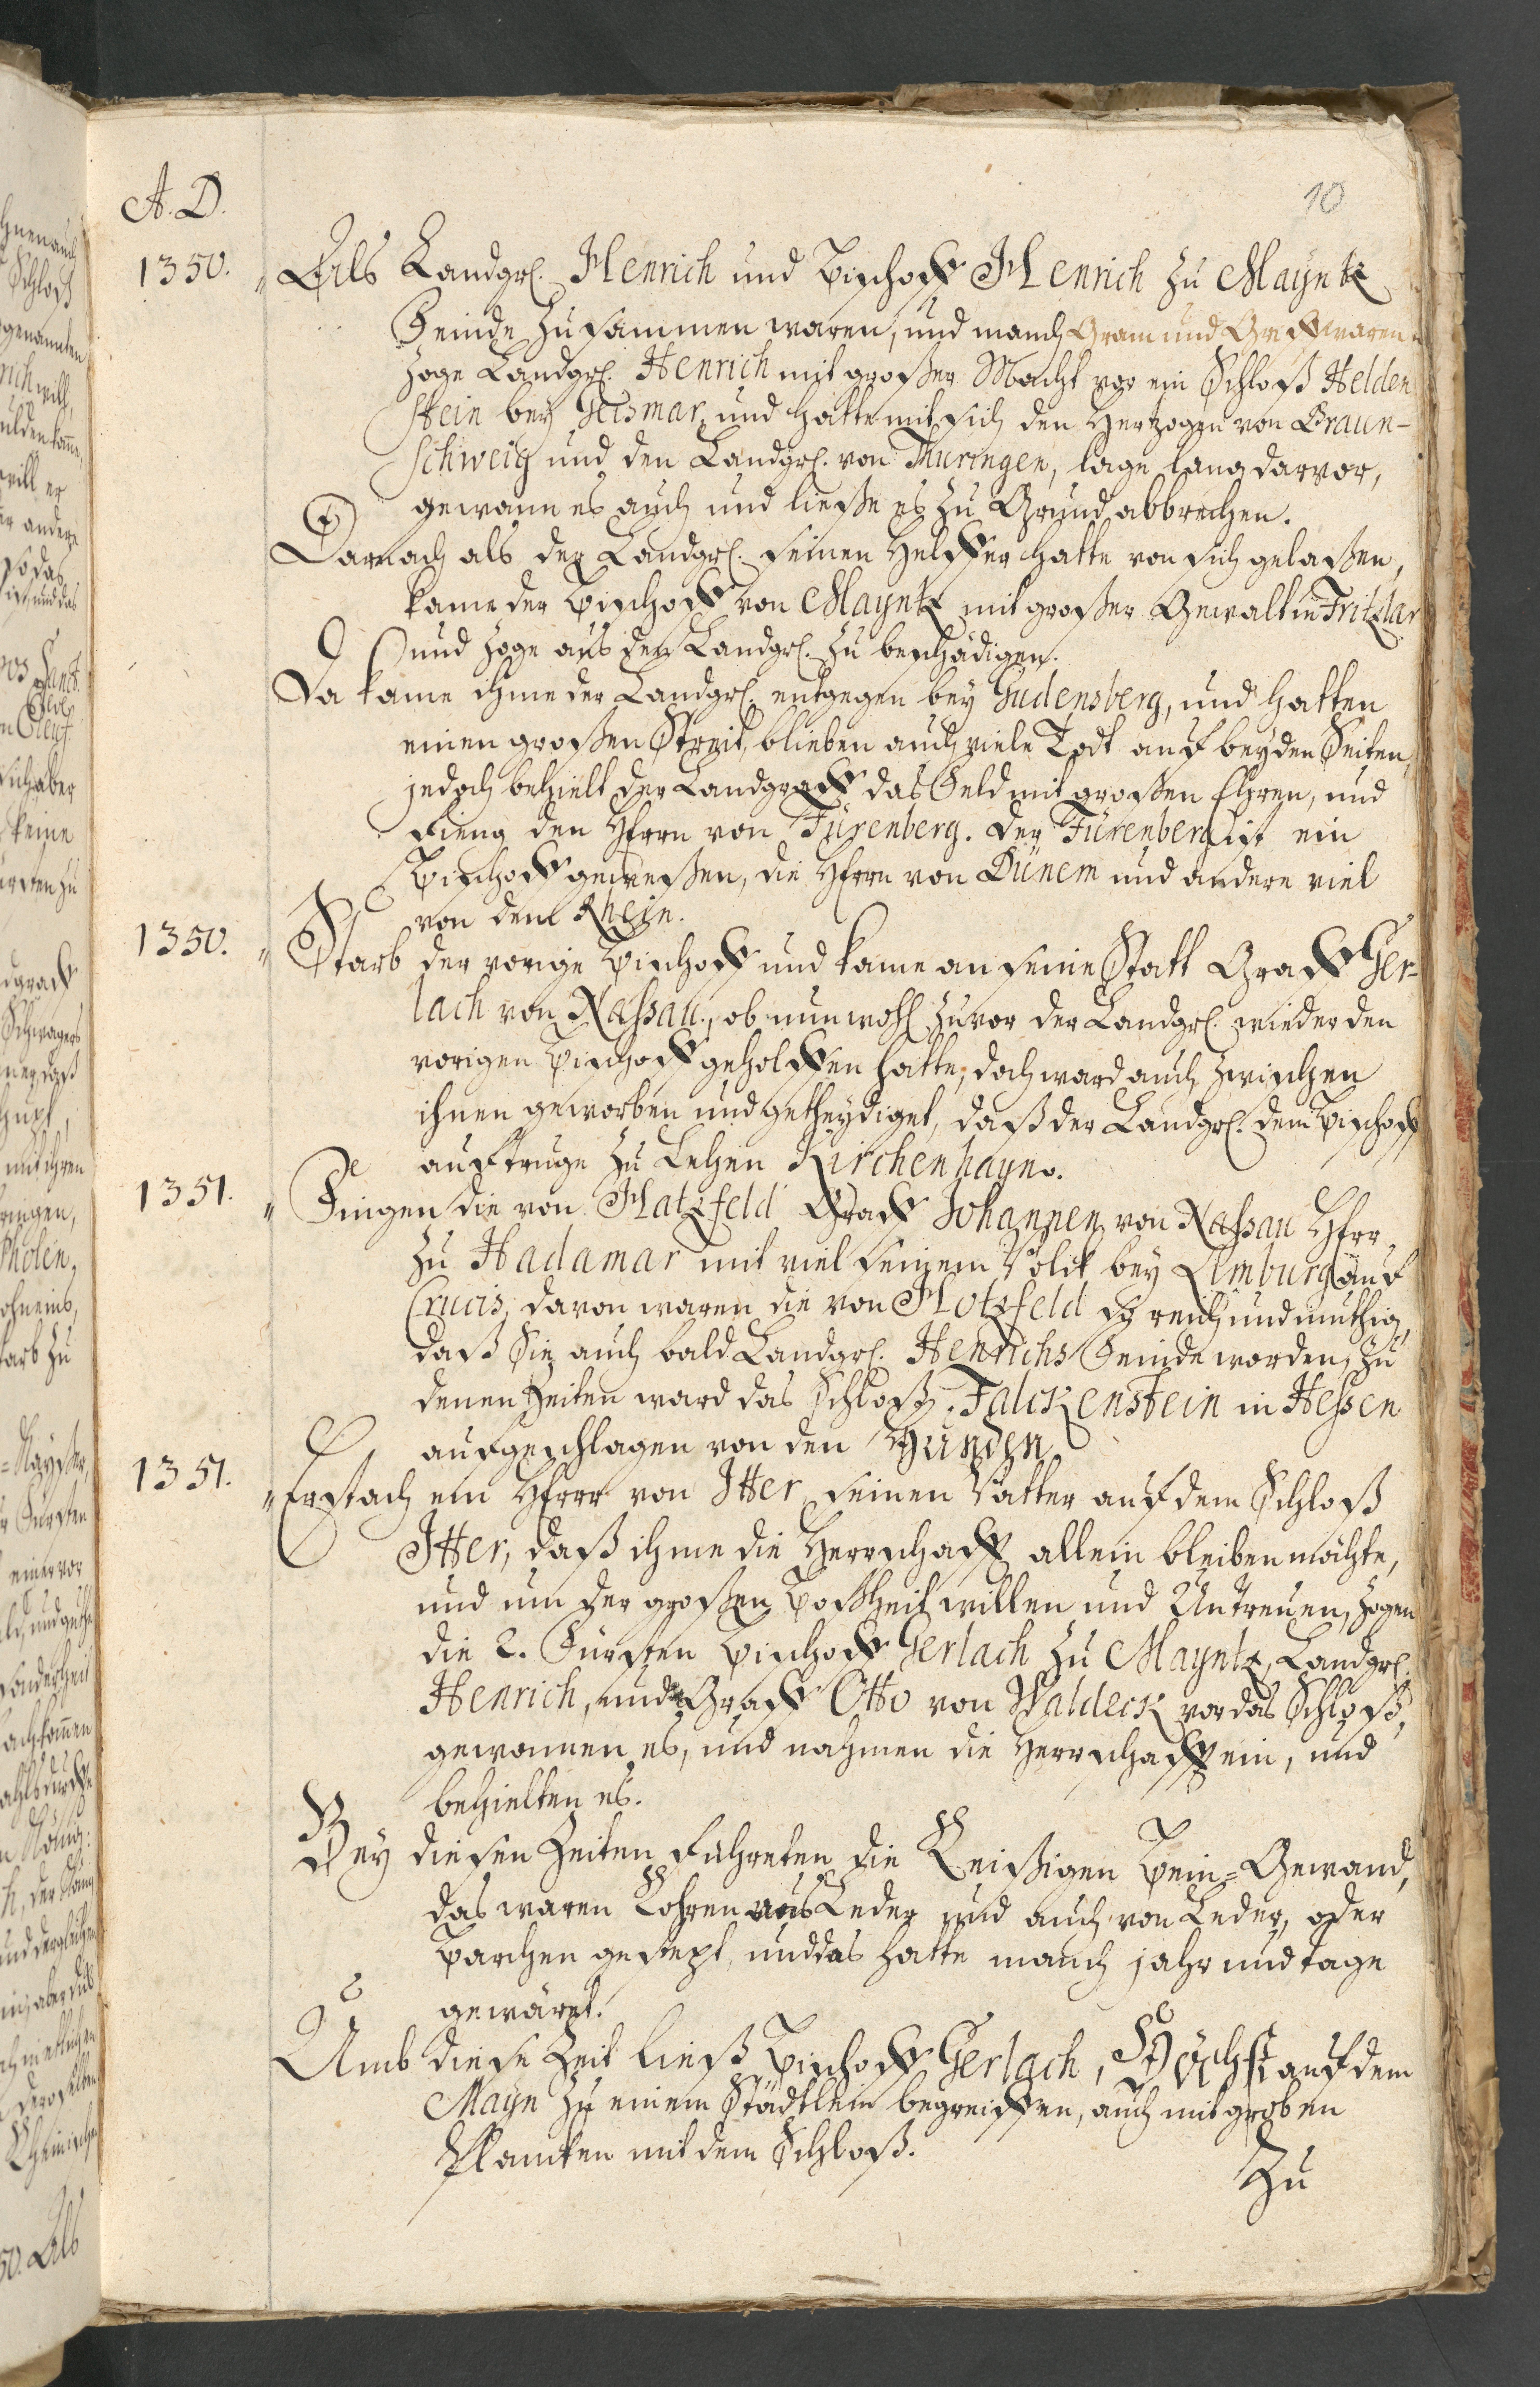 A. D.
10
1350. „ Als Landgrf. Henrich und Bischoff Henrich zu Mayntz
Feinde zusammen waren, und manch Gram und Griff waren
zoge Landgrf. Henrich mit großer Macht vor ein Schloß Helden
stein bey Geismar, und hatte mit sich den Hertzogen von Braun-
schweig und den Landgrf. von Thuringen, lage lang darvor,
gewann es auch und ließe es zu Grund abbrechen.
Darnach als der Landgrf. seinen Helffer hatte von sich gelaßen,
kame der Bischoff von Mayntz mit großer Gewalt in Fritzlar
und zoge aus den Landgrf. zu beschädigen.
Da kame ihme der Landgrf. entgegen bey Gudensberg, und hatten
einen großen Streit, blieben auch viele Todt auf beyden Seiten,
jedoch behielt der Landgraff das Feld mit großen Ehren, und
fieng den Herrn von Fürenberg. der Fürenberg ist ein
Bischoff geweßen, die Herrn von Dünem und andere viel
von dem Rhein.
1350. „ Starb der vorige Bischoff und kame an seine Statt Graff Ger-
lach von Naßau, ob nun wohl zuvor der Landgrf. wieder den
vorigen Bischoff geholffen hatte, doch ward auch zwischen
ihnen geworben und getheydiget, daß der Landgrf. dem Bischoff
auftruge zu Lehen Kirchenhayn.
1351. „ Fingen die von Hatzfeld Graff Johannen von Naßau Herr
zu Hadamar mit viel seinem Volck bey Limburg auf
Crucis, davon waren die von Hotzfeld so reich und muthig,
daß Sie auch bald Landgrf. Henrichs Feinde worden, zu
denen Zeiten ward das Schloß Falckenstein in Heßen
aufgeschlagen von den Hunden
1351. „ Erstach ein Herr von Itter seinen Vatter auf dem Schloß
Itter, daß ihme die Herrschafft allein bleiben möchte,
und um der großen Boßheit willen und Untreuen, zogen
die 2. Fürsten Bischoff Gerlach zu Mayntz, Landgrf.
Henrich, und Graff Otto von Waldeck vor das Schloß,
gewonnen es, und nahmen die Herrschafft ein, und
behielten es.
Bey diesen Zeiten führeten die Reißigen Bein-Gewand,
das waren Rohren aus Leder und auch von Leder, oder
Barchen gestept, und das hatte manch jahr und tage
gewäret.
Umb diese Zeit ließ Bischoff Gerlach, Höchst auf dem
Mayn zu einem Städtlein begreiffen, auch mit groben
Plancken mit dem Schloß.
Zu